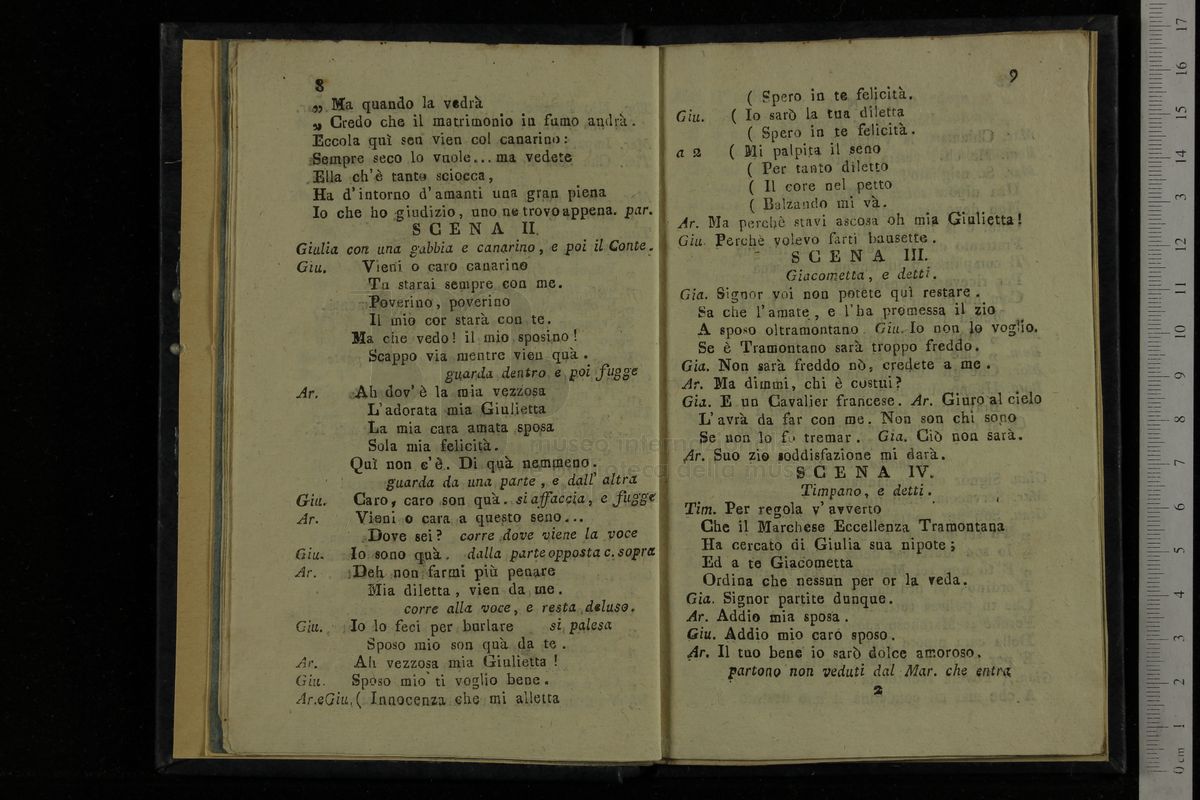 8
„ Ma quando la vedrà
„ Credo che il matrimonio in fumo andrà.
Eccola quì sen vien col canarino:
Sempre seco lo vuole... ma vedete
Ella ch'è tanto sciocca,
Ha d'intorno d'amanti una gran piena
Io che ho giudizio, uno ne trovo appena. par.
SCENA II.
Giulia con una gabbia e canarino, e poi il Conte.
Giu. Vieni o caro canarino
Tu starai sempre con me.
Poverino, poverino
Il mio cor starà con te.
Ma che vedo! il mio sposino!
Scappo via mentre vien quà.
guarda dentro e poi fugge
Ar. Ah dov'è la mia vezzosa
L'adorata mia Giulietta
La mia cara amata sposa
Sola mia felicità.
Quì non c'è. Di quà nemmeno.
guarda da una parte, e dall' altra
Giu. Caro, caro son quà. si affaccia, e fugge
Ar. Vieni o cara a questo seno...
Dove sei? corre dove viene la voce
Giu. Io sono quà. dalla parte opposta c. sopra
Ar. Deh non farmi più penare
Mia diletta, vien da me.
corre alla voce, e resta deluso.
Giu. Io lo feci per burlare si palesa
Sposo mio son quà da te.
Ar. Ah vezzosa mia Giulietta!
Giu. Sposo mio ti voglio bene.
Ar.eGiu. ( Innocenza che mi alletta
9
( Spero in te felicità.
Giu. ( Io sarò la tua diletta
( Spero in te felicità.
a 2 ( Mi palpita il seno
( Per tanto diletto
( Il core nel petto
( Balzando mi và.
Ar. Ma perchè stavi ascosa oh mia Giulietta!
Giu. Perchè volevo farti bausette.
SCENA III.
Giacometta, e detti.
Gia. Signor voi non potete quì restare.
Sa che l'amate, e l'ha promessa il zio
A sposo oltramontano. Giu. Io non lo voglio.
Se è Tramontano sarà troppo freddo.
Gia. Non sarà freddo nò, credete a me.
Ar. Ma dimmi, chi è costui?
Gia. E un Cavalier francese. Ar. Giuro al cielo
L'avrà da far con me. Non son chi sono
Se non lo fo tremar. Gia. Ciò non sarà.
Ar. Suo zio soddisfazione mi darà.
SCENA IV.
Timpano, e detti.
Tim. Per regola v'avverto
Che il Marchese Eccellenza Tramontana
Ha cercato di Giulia sua nipote;
Ed a te Giacometta
Ordina che nessun per or la veda.
Gia. Signor partite dunque.
Ar. Addio mia sposa.
Giu. Addio mio caro sposo.
Ar. Il tuo bene io sarò dolce amoroso.
partono non veduti dal Mar. che entra
2